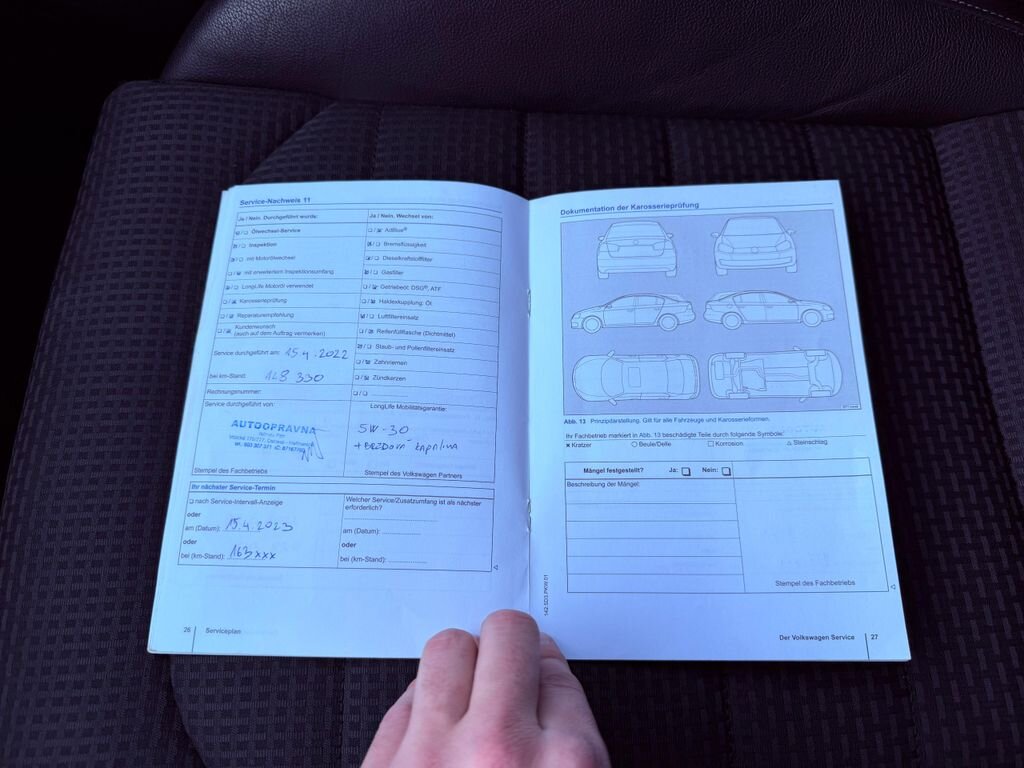 Service-Nachweis 11
Ja / Nein, Durchgeführt wurde:
Ölwechsel-Service
Inspektion
mit Motorölwechsel
mit erweitertem Inspektionsumfang
LongLife Motoröl verwendet
Karosserieprüfung
Reparaturempfehlung
Kundenwunsch
(auch auf dem Auftrag vermerken)
Service durchgeführt am: 15.4.2022
bei km-Stand: 148 330
Rechnungsnummer:
Service durchgeführt von:
AUTOOPRAVNA
Stempel des Fachbetriebs
Ja / Nein, Wechsel von:
AdBlue®
Bremsflüssigkeit
Dieselkraftstofffilter
Gasfilter
Getriebeöl: DSG®, ATF
Haldexkupplung: Öl
Luftfiltereinsatz
Reifenfüllflasche (Dichtmittel)
Staub- und Pollenfiltereinsatz
Zahnriemen
Zündkerzen
LongLife Mobilitätsgarantie:
5W-30
Stempel des Volkswagen Partners
Ihr nächster Service-Termin
nach Service-Intervall-Anzeige
oder
am (Datum): 15.4.2023
oder
bei (km-Stand): 163xxx
Welcher Service/Zusatzumfang ist als nächster
erforderlich?
am (Datum):
oder
bei (km-Stand):
26 Serviceplan
Dokumentation der Karosserieprüfung
Abb. 13 Prinzipdarstellung. Gilt für alle Fahrzeuge und Karosserieformen.
Ihr Fachbetrieb markiert in Abb. 13 beschädigte Teile durch folgende Symbole:
Kratzer Beule/Delle Korrosion Steinschlag
Mängel festgestellt? Ja: Nein:
Beschreibung der Mängel:
Stempel des Fachbetriebs
Der Volkswagen Service 27